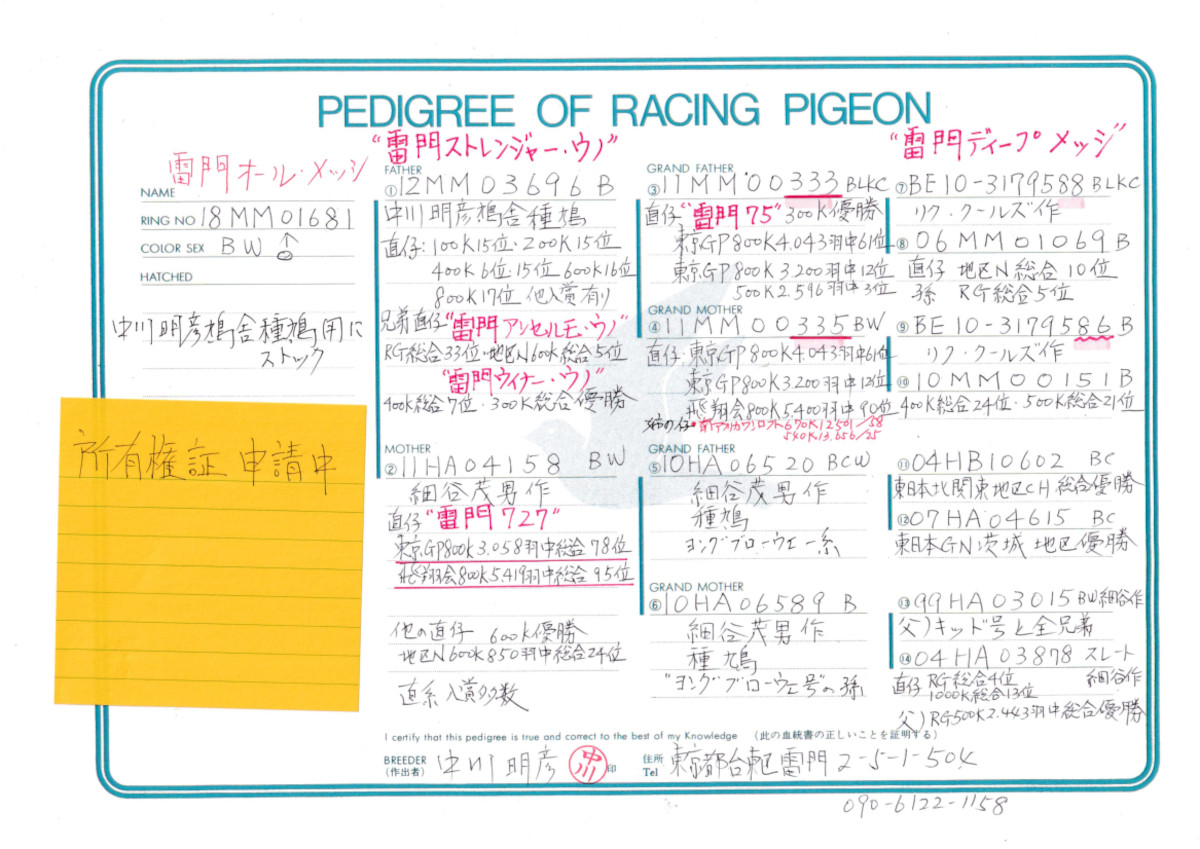 PEDIGREE OF RACING PIGEON
雷門オール・メッジ
NAME
RING NO 18MM01681
COLOR SEX BW
HATCHED
中川明彦鳩舎種鳩用に
ストック
所有権証 申請中
"雷門ストレンジャー・ウノ"
FATHER
①12MM03696 B
中川明彦鳩舎種鳩
直仔:100K15位・200K15位
400K6位・15位 600K16位
800K17位 他入賞有り
兄弟直仔"雷門アンセルモ・ウノ"
RG総合33位・地区N600K総合5位
"雷門ウイナー・ウノ"
400K総合7位・300K総合優勝
MOTHER
②11HA04158 BW
細谷茂男作
直仔"雷門727"
東京GP800K3.058羽中総合78位
飛翔会800K5.419羽中総合95位
他の直仔 600K優勝
地区N600K850羽中総合24位
直系入賞多数
GRAND FATHER
③11MM00333 BLKC
直仔"雷門75"300K優勝
東京GP800K4.043羽中61位
東京GP800K3.200羽中12位
500K2.596羽中3位
GRAND MOTHER
④11MM00335 BW
直仔.東京GP800K4.043羽中61位
東京GP800K3.200羽中12位
飛翔会800K5.400羽中90位
姉の仔・南アフリカワンロフト670K12501/58
540K13.656/25
GRAND FATHER
⑤10HA06520 BCW
細谷茂男作
種鳩
ヨングブローウェー系
GRAND MOTHER
⑥10HA06589 B
細谷茂男作
種鳩
"ヨングブローウェ号"の孫
"雷門ディープメッジ"
⑦BE10-3179588 BLKC
リク・クールズ作
⑧06MM01069 B
直仔 地区N総合10位
孫 RG総合5位
⑨BE10-3179586 B
リク・クールズ作
⑩10MM00151 B
400K総合24位・500K総合21位
⑪04HB10602 BC
東日本北関東地区CH総合優勝
⑫07HA04615 BC
東日本GN茨城地区優勝
⑬99HA03015 BW細谷作
父)キッド号と全兄弟
⑭04HA03878 スレート
直仔 RG総合4位 細谷作
1000K総合13位
父)RG500K2.443羽中総合優勝
I certify that this pedigree is true and correct to the best of my Knowledge (此の血統書の正しいことを証明する)
BREEDER (作出者) 中川明彦 中川 印 住所 Tel 東京都台東区雷門2-5-1-504
090-6122-1158